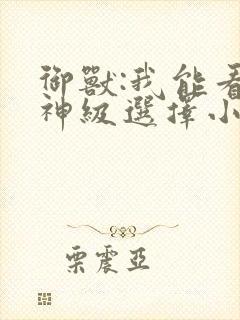 御獸:我能看
神級選擇小
栗震亞